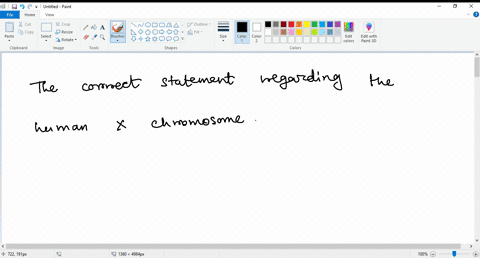 Untitled - Paint
File Home View
Paste Cut Copy Select Crop Resize Rotate Brushes Outline Fill Size Color 1 Color 2 Edit colors Edit with Paint 3D
Clipboard Image Tools Shapes Colors
The correct statement regarding the
human X chromosome.
722, 191px 1380 × 4984px 100%